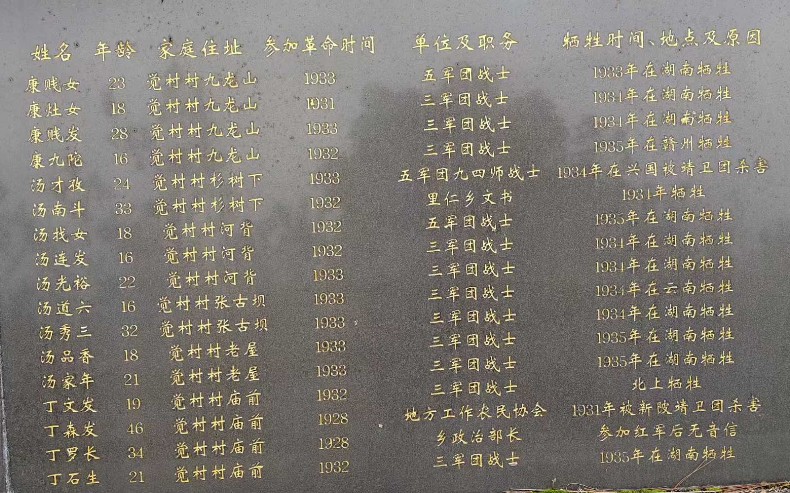 姓名 年龄 家庭住址 参加革命时间 单位及职务 牺牲时间、地点及原因
康贱女 23 觉村村九龙山 1933 五军团战士 1933年在湖南牺牲
康灶女 18 觉村村九龙山 1931 三军团战士 1934年在湖南牺牲
康贱发 28 觉村村九龙山 1933 三军团战士 1934年在湖南牺牲
康九陀 16 觉村村九龙山 1932 三军团战士 1935年在赣州牺牲
汤才孜 24 觉村村杉树下 1933 五军团九四师战士 1934年在兴国被靖卫团杀害
汤南斗 33 觉村村杉树下 1932 里仁乡文书 1934年牺牲
汤女 18 觉村村河背 1932 五军团战士 1935年在湖南牺牲
汤连发 16 觉村村河背 1932 三军团战士 1934年在湖南牺牲
汤光裕 22 觉村村河背 1933 三军团战士 1934年在湖南牺牲
汤道六 16 觉村村张古坝 1933 三军团战士 1934年在云南牺牲
汤秀三 32 觉村村张古坝 1933 三军团战士 1934年在湖南牺牲
汤品香 18 觉村村老屋 1933 三军团战士 1935年在湖南牺牲
汤家年 21 觉村村老屋 1933 三军团战士 1935年在湖南牺牲
丁文发 19 觉村村庙前 1932 三军团战士 北上牺牲
丁森发 46 觉村村庙前 1928 地方工作农民协会 1931年被新陂靖卫团杀害
丁罗长 34 觉村村庙前 1928 乡政治部长 参加红军后无音信
丁石生 21 觉村村庙前 1932 三军团战士 1935年在湖南牺牲